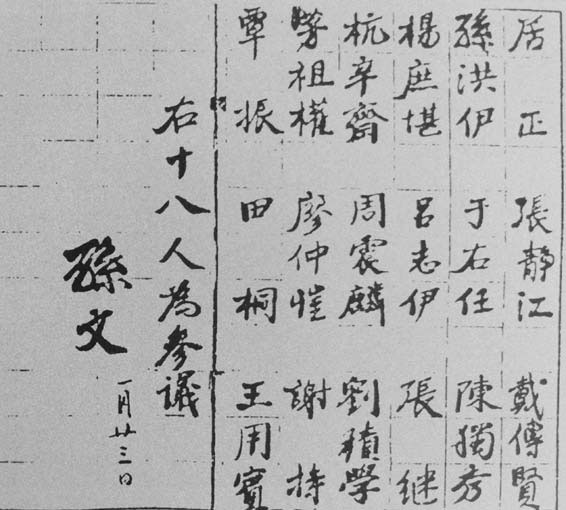 居正 張靜江 戴傳賢
孫洪伊 于右任 陳獨秀
楊庶堪 呂志伊 張繼
杭辛齋 周震麟 劉積學
茅祖權 廖仲愷 謝持
覃振 田桐 王用賓
右十八人為參議
孫文
一月廿三日